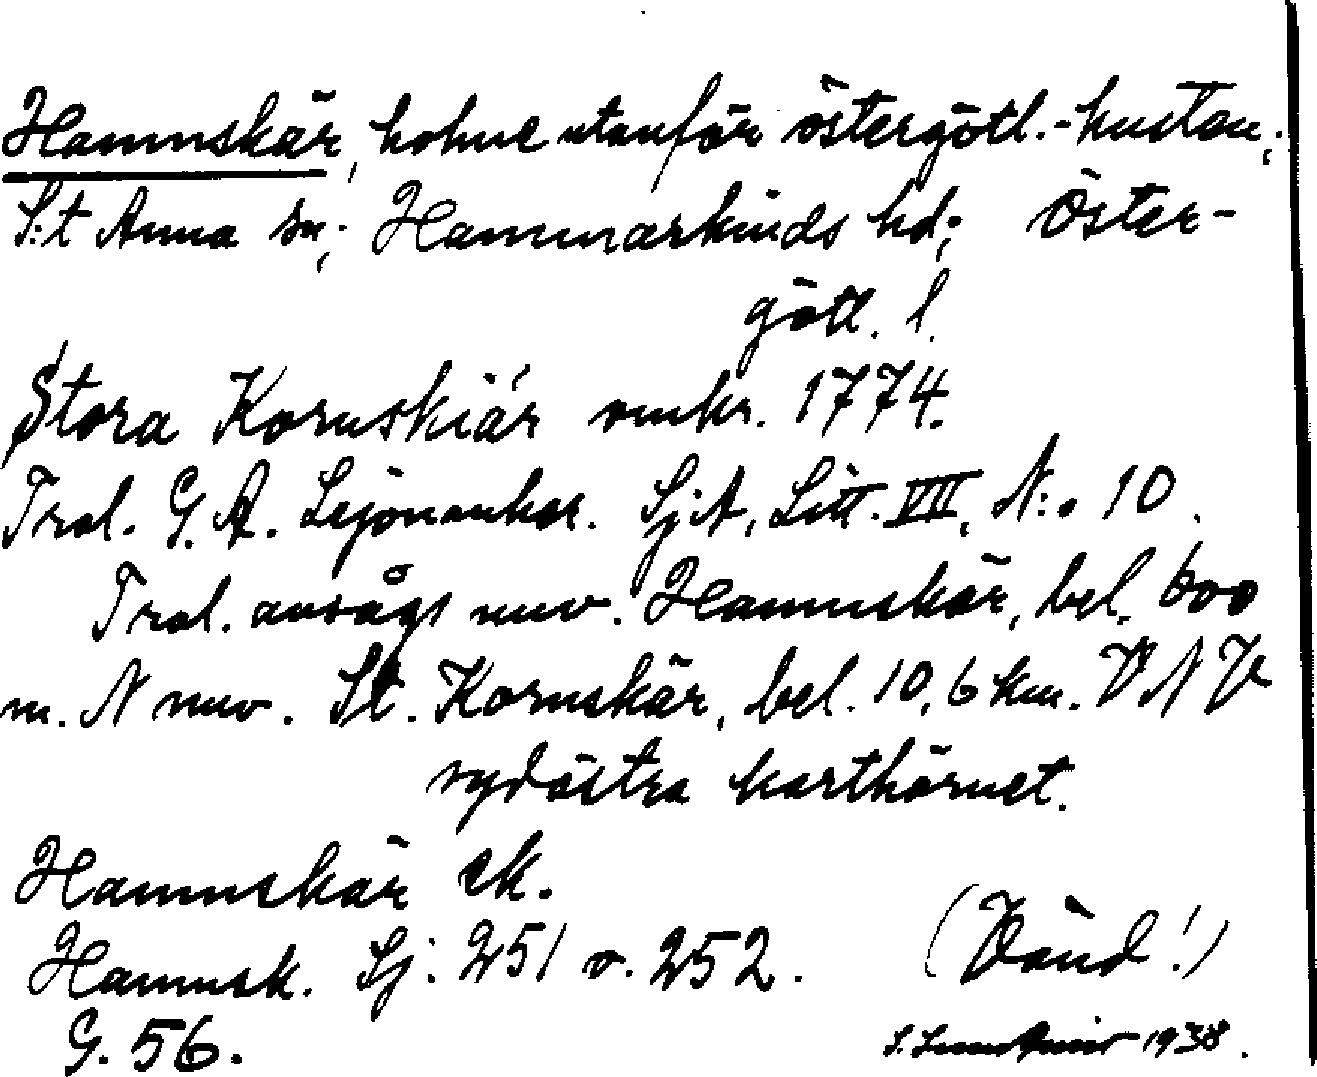 Hamnskär, holme utanför östergötl.-kusten;
S:t Anna sn; Hammarkinds hd; Öster-
götl. l.
Stora Kornskiär omkr. 1774.
Trol. G. A. Lejonankar. SjA, Litt. VII, N:o 10.
Trol. avsågs nuv. Hamnskär, bel. 600
m. N nuv. St. Kornskär, bel. 10,6 km. V N V
sydöstra karthörnet.
Hamnskär ek.
Hamnsk. Sj: 251 o. 252. (Vänd!)
G. 56. 1938.